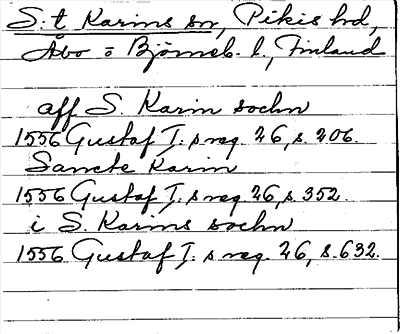 S:t Karins sn, Pikis hd,
Åbo o Björneb. l., Finland
aff S. Karin sochn
1556 Gustaf I. s reg. 26, s. 206.
Sancte Karin
1556 Gustaf I. s reg. 26, s. 352.
i S. Karins sochn
1556. Gustaf I. s reg. 26, s. 632.